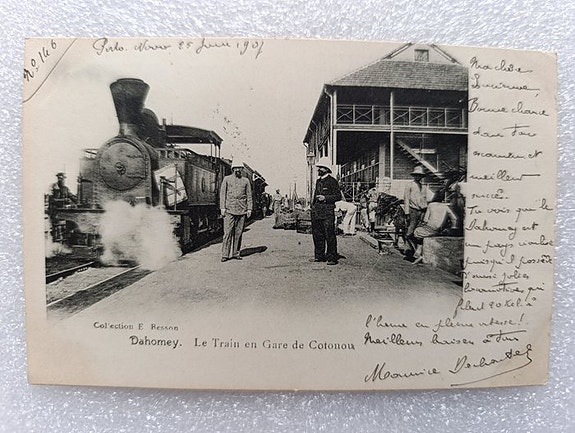 No 146
Porto Novo 25 Juin 1907
Ma chère
Lucienne,
Bonne chance
dans ton
examen et
meilleur
succès.
Tu vois que le
Dahomey est
un pays
puisqu'il possède
d'aussi jolies
locomotives qui
font 20 Kil. à
l'heure en pleine vitesse!.
Meilleurs baisers à tous
Maurice
Collection E. Besson
Dahomey. Le Train en Gare de Cotonou